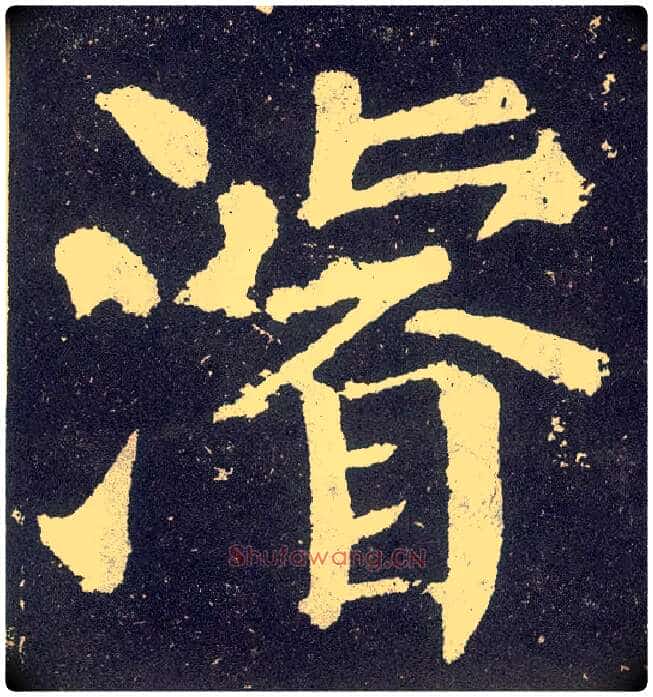 濬
Shufawang.CN